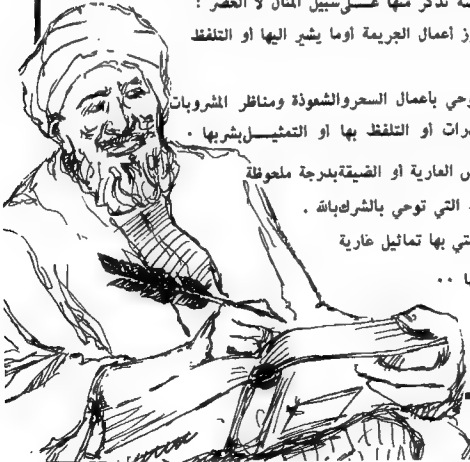 نذكر منها عـــلى سبيل المثال لا الحصر :
أعمال الجريمة أوما يشير اليها أو التلفظ
بأعمال السحر والشعوذة ومناظر المشروبات
أو التلفظ بها أو التمثيـــل بشربها .
العارية أو الضيقة بدرجة ملحوظة
التي توحي بالشرك بالله .
بها تماثيل عارية